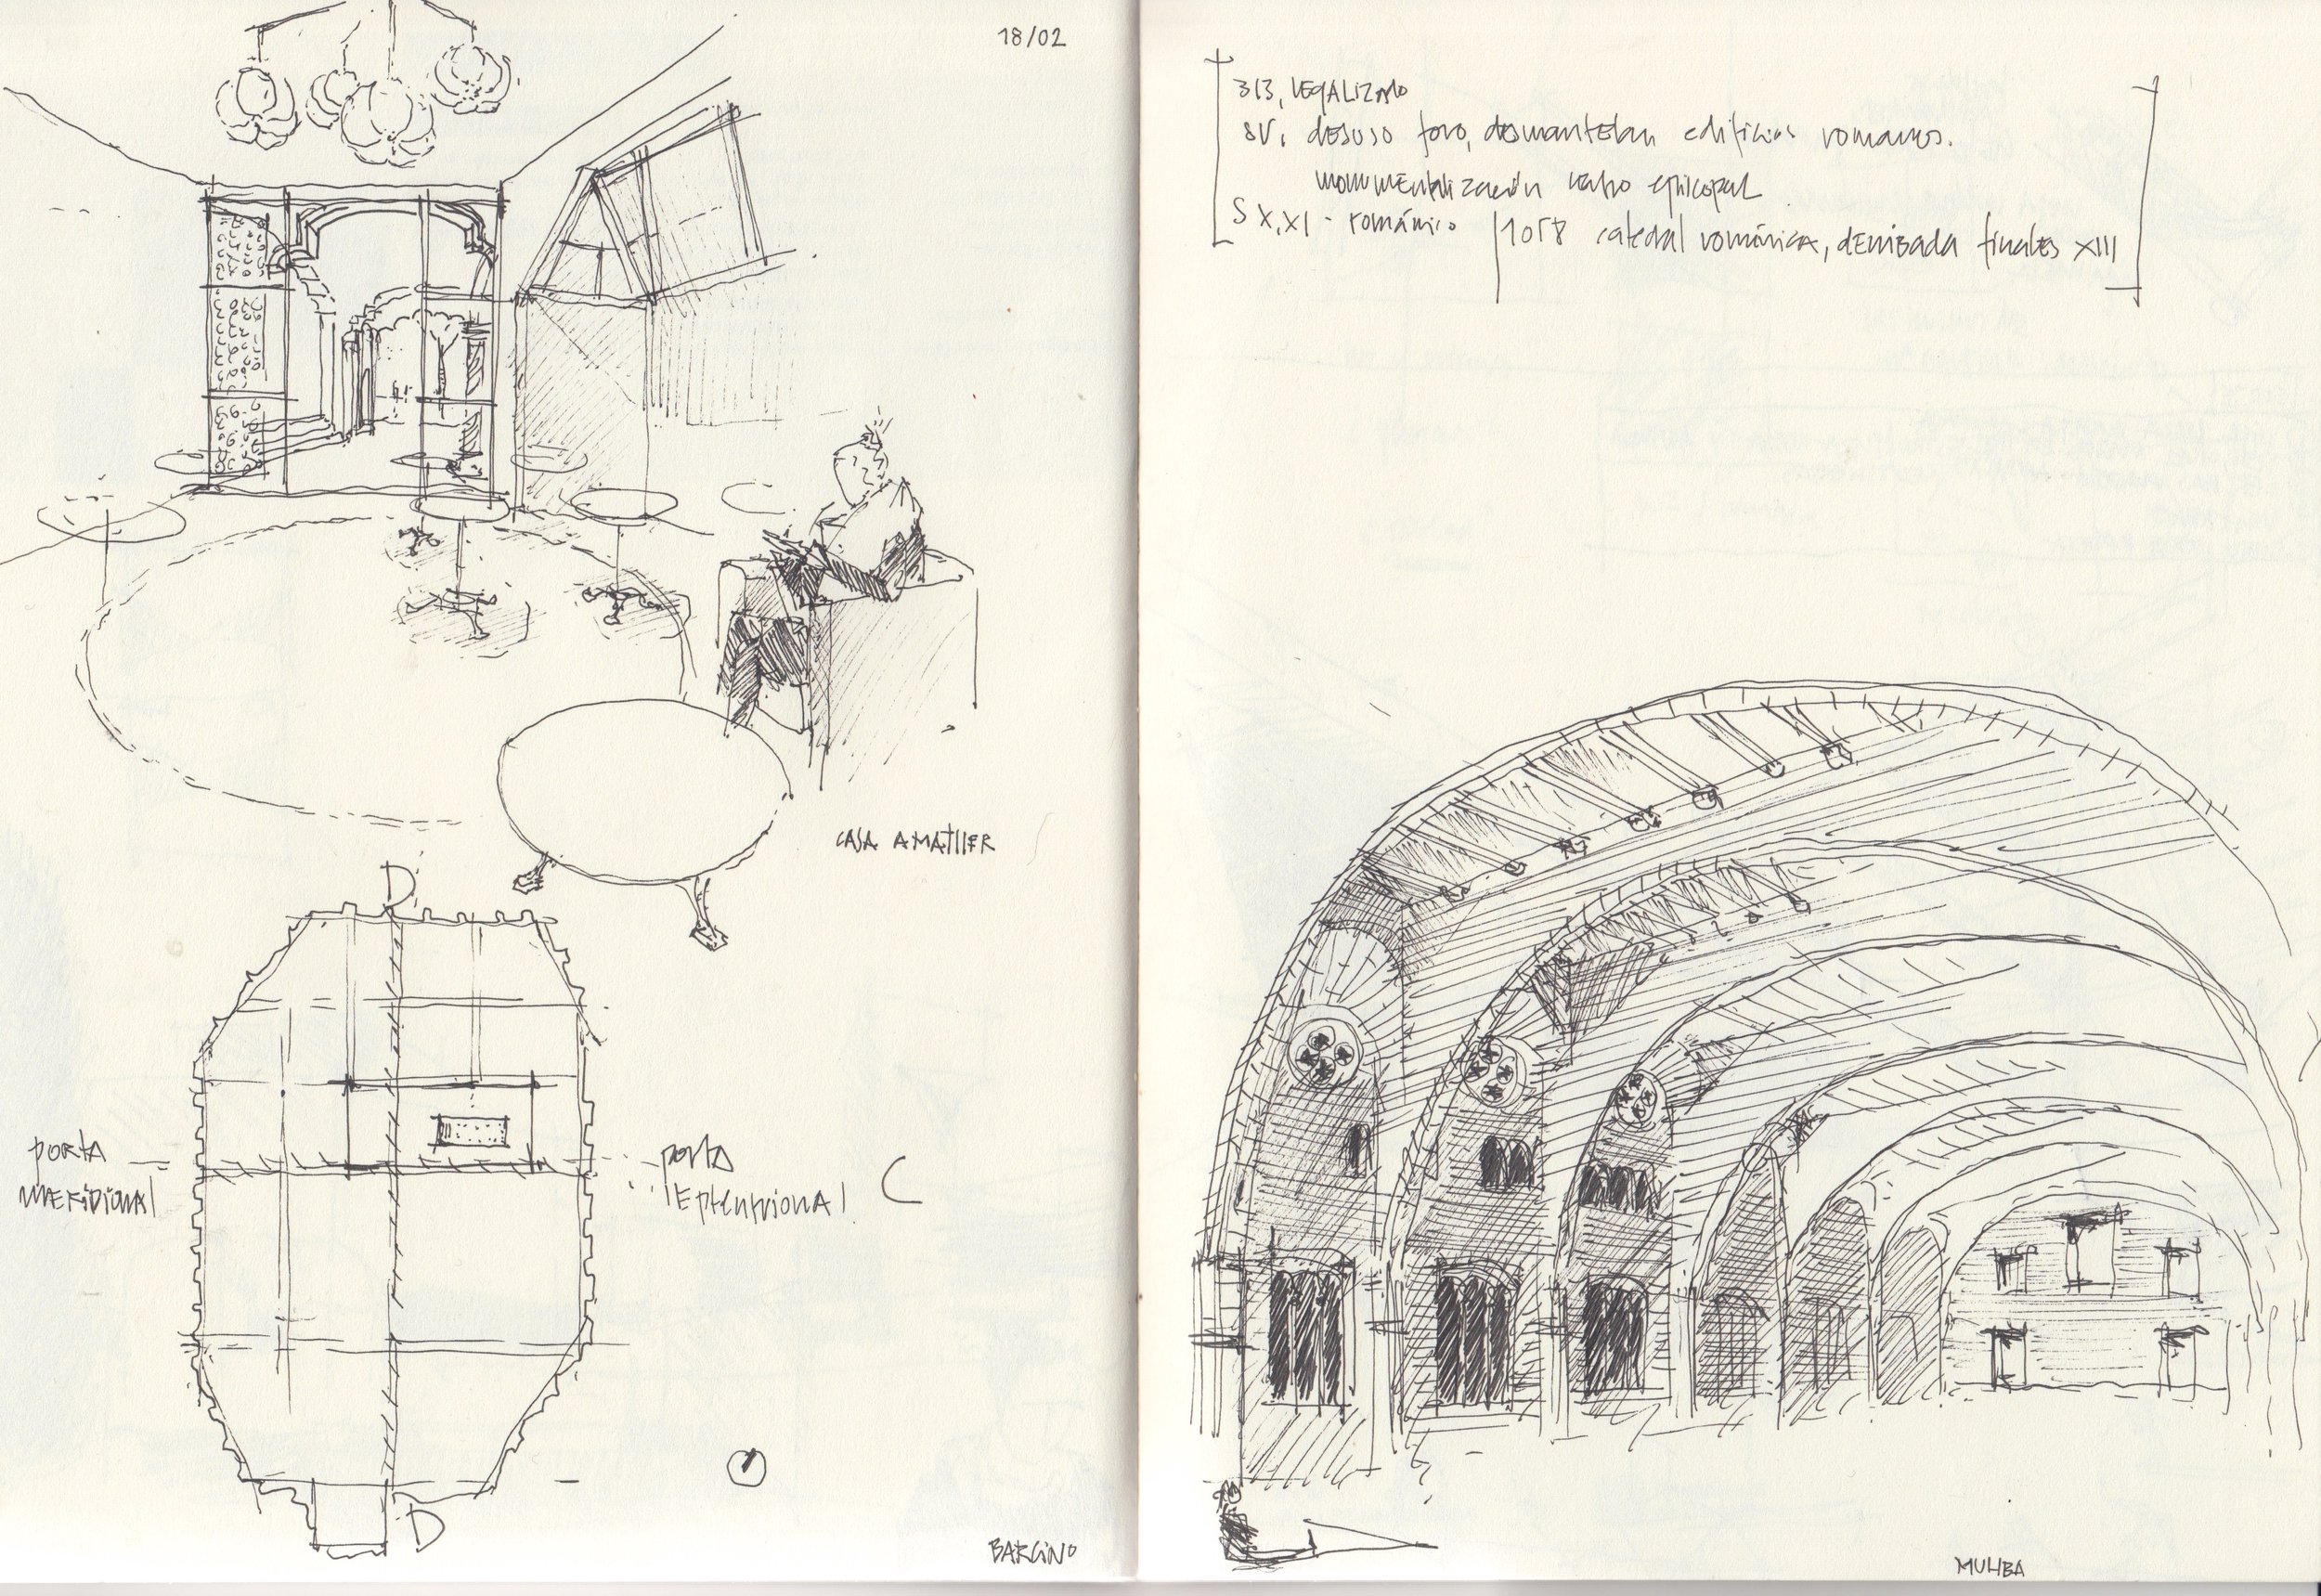 18/02
CASA AMATLLER
D
porta
MERIDIONAL
porta
SEptentrional
C
D
BARCINO
313, LEGALIZADO
SV. DESUSO foro, desmantelan edificios romanos.
monumentalización episcopal
S X, XI - románico | 1058 catedral románica, dERRIBada finales XIII
MUHBA